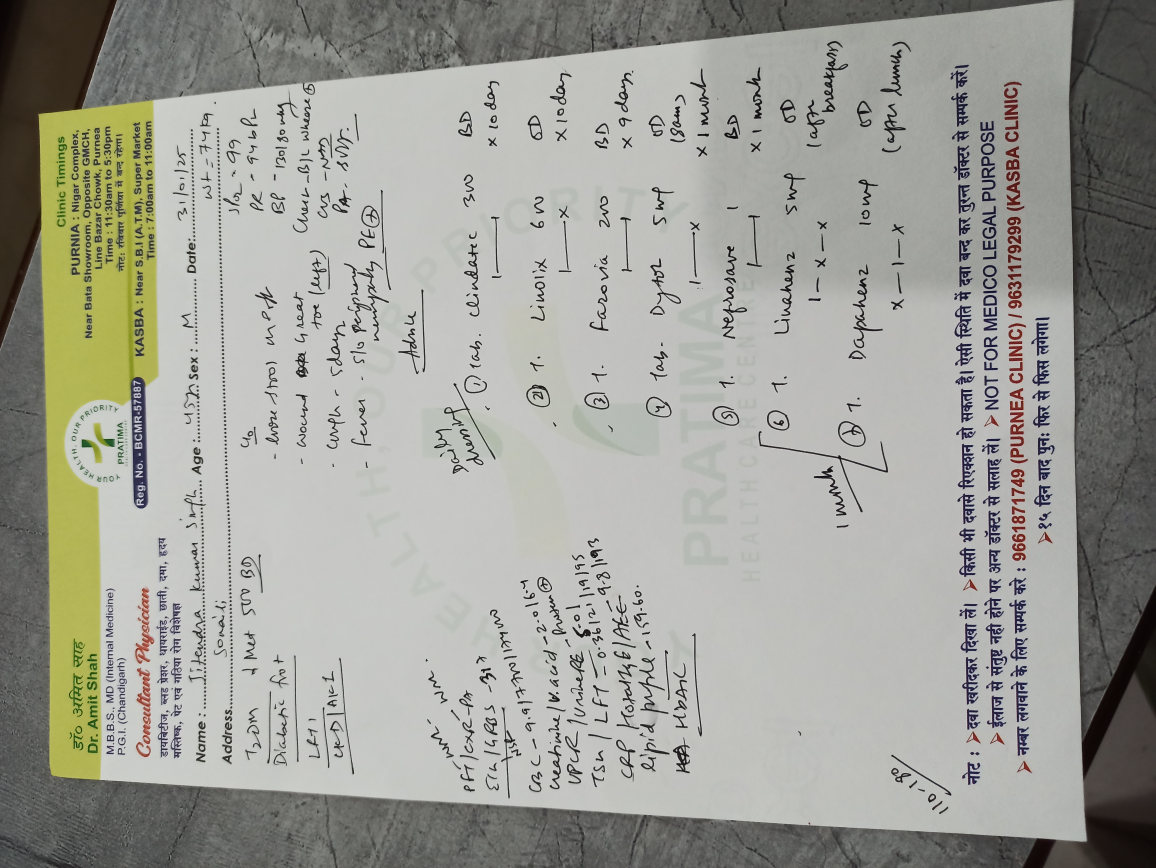 डॉ० अमित साह
Dr. Amit Shah
M.B.B.S., MD (Internal Medicine)
P.G.I. (Chandigarh)
Consultant Physician
डायबिटीज, ब्लड प्रेशर, थायराईड, छाती, दमा, हृदय
मस्तिष्क, पेट एवं गठिया रोग विशेषज्ञ
YOUR HEALTH, OUR PRIORITY
PRATIMA
Reg. No. - BCMR-57887
Clinic Timings
PURNIA : Nigar Complex,
Near Bata Showroom, Opposite GMCH,
Line Bazar Chowk, Purnea
Time : 11:30am to 5:30pm
नोट: रविवार पूर्णिया में बन्द रहेगा।
KASBA : Near S.B.I (A.T.M), Super Market
Time : 7:00am to 11:00am
Name : Jitendra Kumar Singh Age : 45y Sex : M Date: 31/01/25
Address Sonaili
Wt = 74 kg.
T2DM Met 500 BD
Diabetic foot
LFT
CKD/AKI
c/o
- wound great toe (left)
- cough - 5days
- fever
SpO2 = 99
PR = 94 bpm
BP - 130/80
Chest - B/L wheeze ⊕
CVS - NAD
PA - soft
PE ⊕
Advice
Daily dressing
① Tab. Clindatec 300 BD
1—1 x 10 day
② T. Linolix 600 OD
1—x x 10 day
③ T. Farovia 200 BD
1—1 x 9 days
④ Tab. Dytor 5 mg OD
1—x (8am) x 1 month
⑤ T. Nefrosave 1 BD
1—1 x 1 month
⑥ T. Linahenz 5 mg OD
1-x-x (after breakfast)
⑦ T. Dapahenz 10 mg OD
x-1-x (after lunch)
1 month
PFT/CXR-PA
ECG/GRBS - 317
CBC - 9.9/
Creatinine/U. acid - 2.01
UPCR/Urine RE
TSH/LFT
CRP
Lipid profile - 159.60.
- HbA1C
110-180
PRATIMA
HEALTHCARE CENTRE
नोट : ➤ दवा खरीदकर दिखा लें। ➤ किसी भी दवासे रिएक्शन हो सकता है। ऐसी स्थिति में दवा बन्द कर तुरन्त डॉक्टर से सम्पर्क करें।
➤ ईलाज से संतुष्ट नही होने पर अन्य डॉक्टर से सलाह लें। ➤ NOT FOR MEDICO LEGAL PURPOSE
➤ नम्बर लगवाने के लिए सम्पर्क करे : 9661871749 (PURNEA CLINIC) / 9631179299 (KASBA CLINIC)
➤ १५ दिन बाद पुनः फिर से फिस लगेगा।